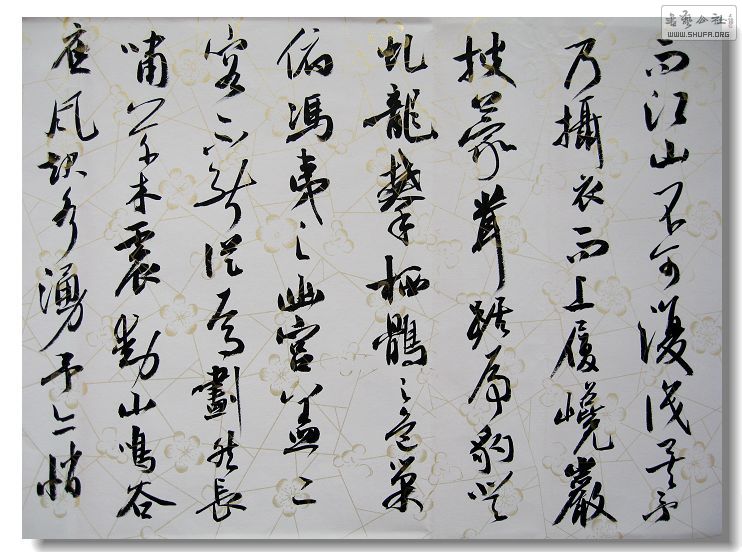 而江山不可復識矣予
乃攝衣而上履巉巖
披蒙茸踞虎豹登
虬龍攀栖鶻之危巢
俯馮夷之幽宮蓋二
客不能從焉劃然長
嘯草木震動山鳴谷
應風起水湧予亦悄
书艺公社
WWW.SHUFA.ORG